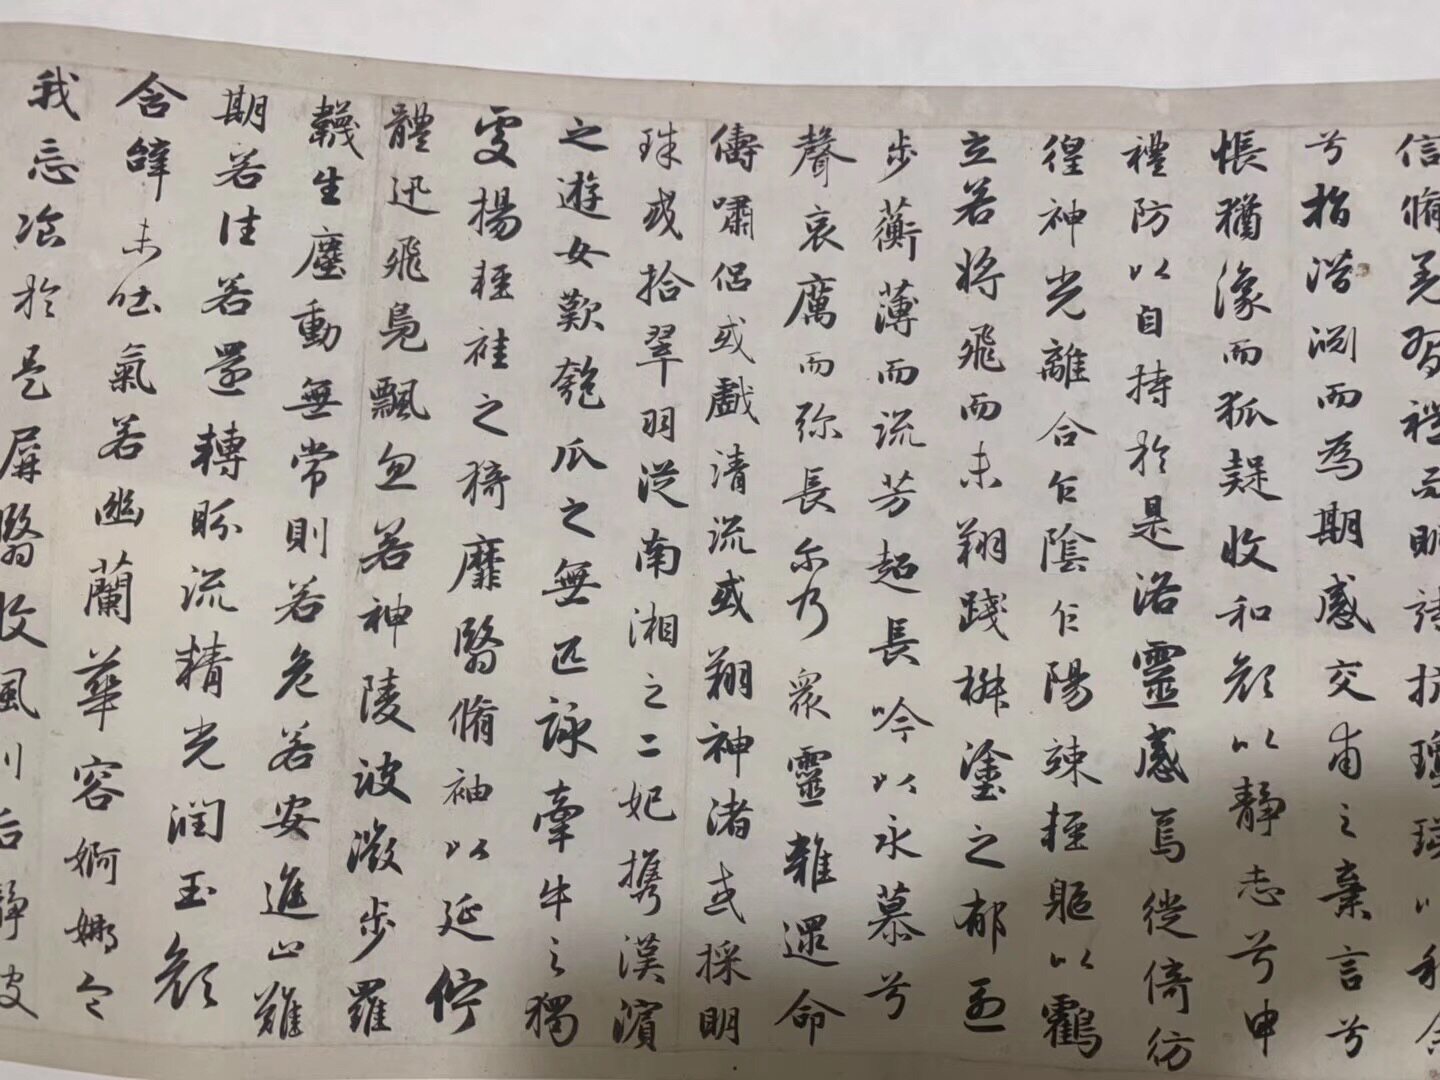 信脩羌習禮而明詩抗瓊珶以和余
兮指潛淵而為期感交甫之棄言兮
悵猶豫而狐疑收和顏以靜志兮申
禮防以自持於是洛靈感焉徙倚彷
徨神光離合乍陰乍陽竦輕軀以鶴
立若將飛而未翔踐椒塗之郁烈
步蘅薄而流芳超長吟以永慕兮
聲哀厲而彌長尒乃衆靈雜遝命
儔嘯侶或戲清流或翔神渚或採明
珠或拾翠羽從南湘之二妃攜漢濱
之遊女歎匏瓜之無匹詠牽牛之獨
處揚輕袿之猗靡翳脩袖以延佇
體迅飛鳧飄忽若神陵波微步羅
韈生塵動無常則若危若安進止難
期若往若還轉眄流精光潤玉顏
含辭未吐氣若幽蘭華容婀娜令
我忘飡於是屏翳收風川后靜波